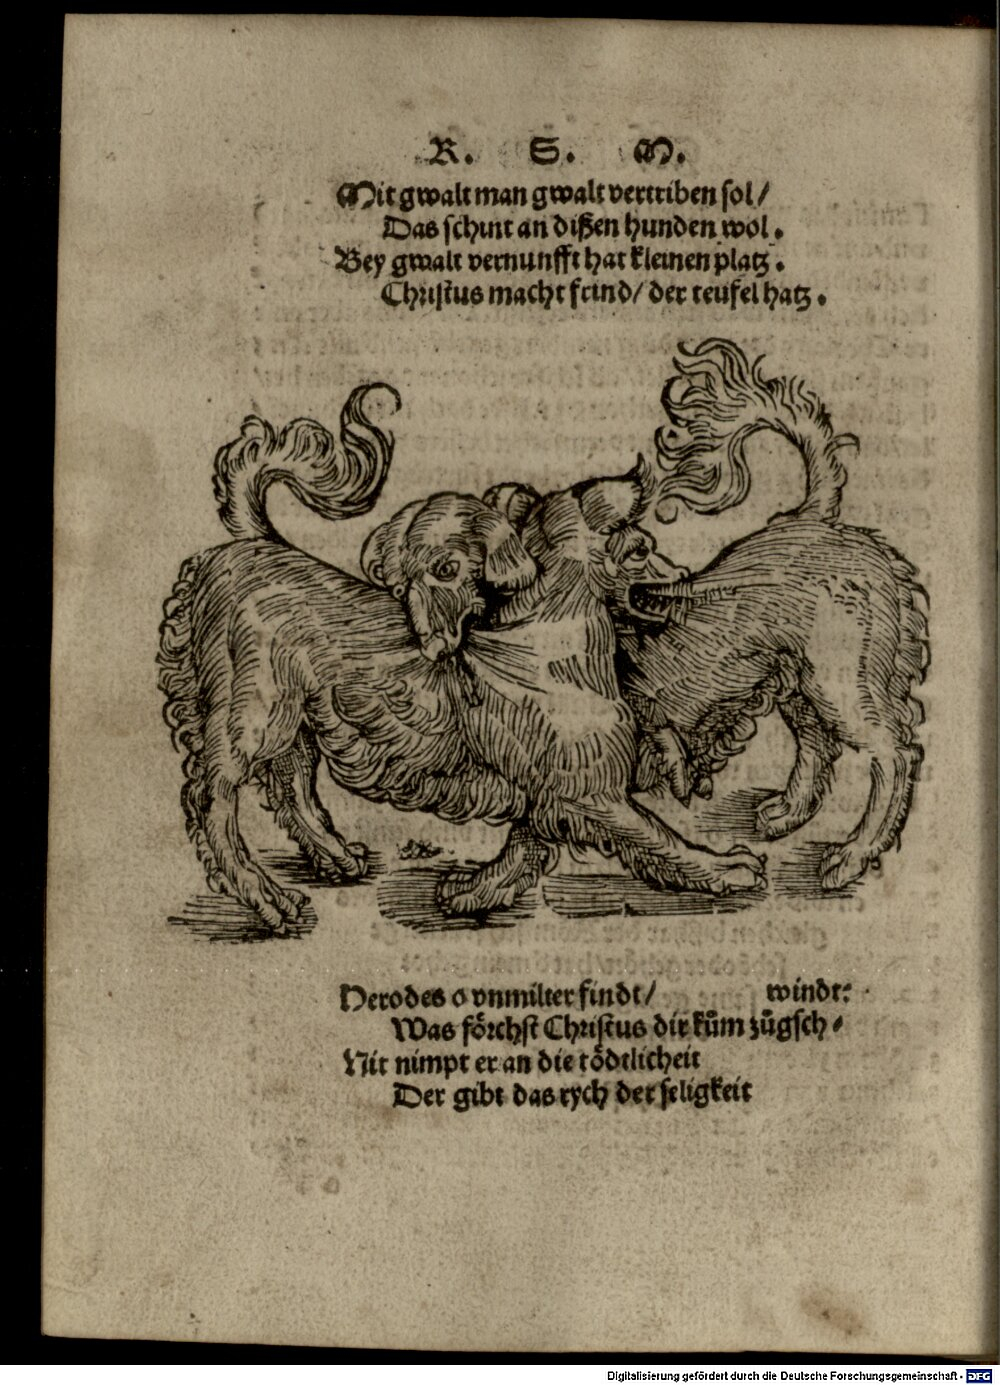 R. S. M.
Mit gwalt man gwalt vertriben sol /
Das schint an dißen hunden wol.
Bey gwalt vernunfft hat kleinen platz.
Christus macht frind / der teufel hatz.
Herodes o vnmilter findt / windt:
Was förchst Christus dir kům zůgsch⸗
Nit nimpt er an die tödtlicheit
Der gibt das rych der seligkeit
Digitalisierung gefördert durch die Deutsche Forschungsgemeinschaft - DFG